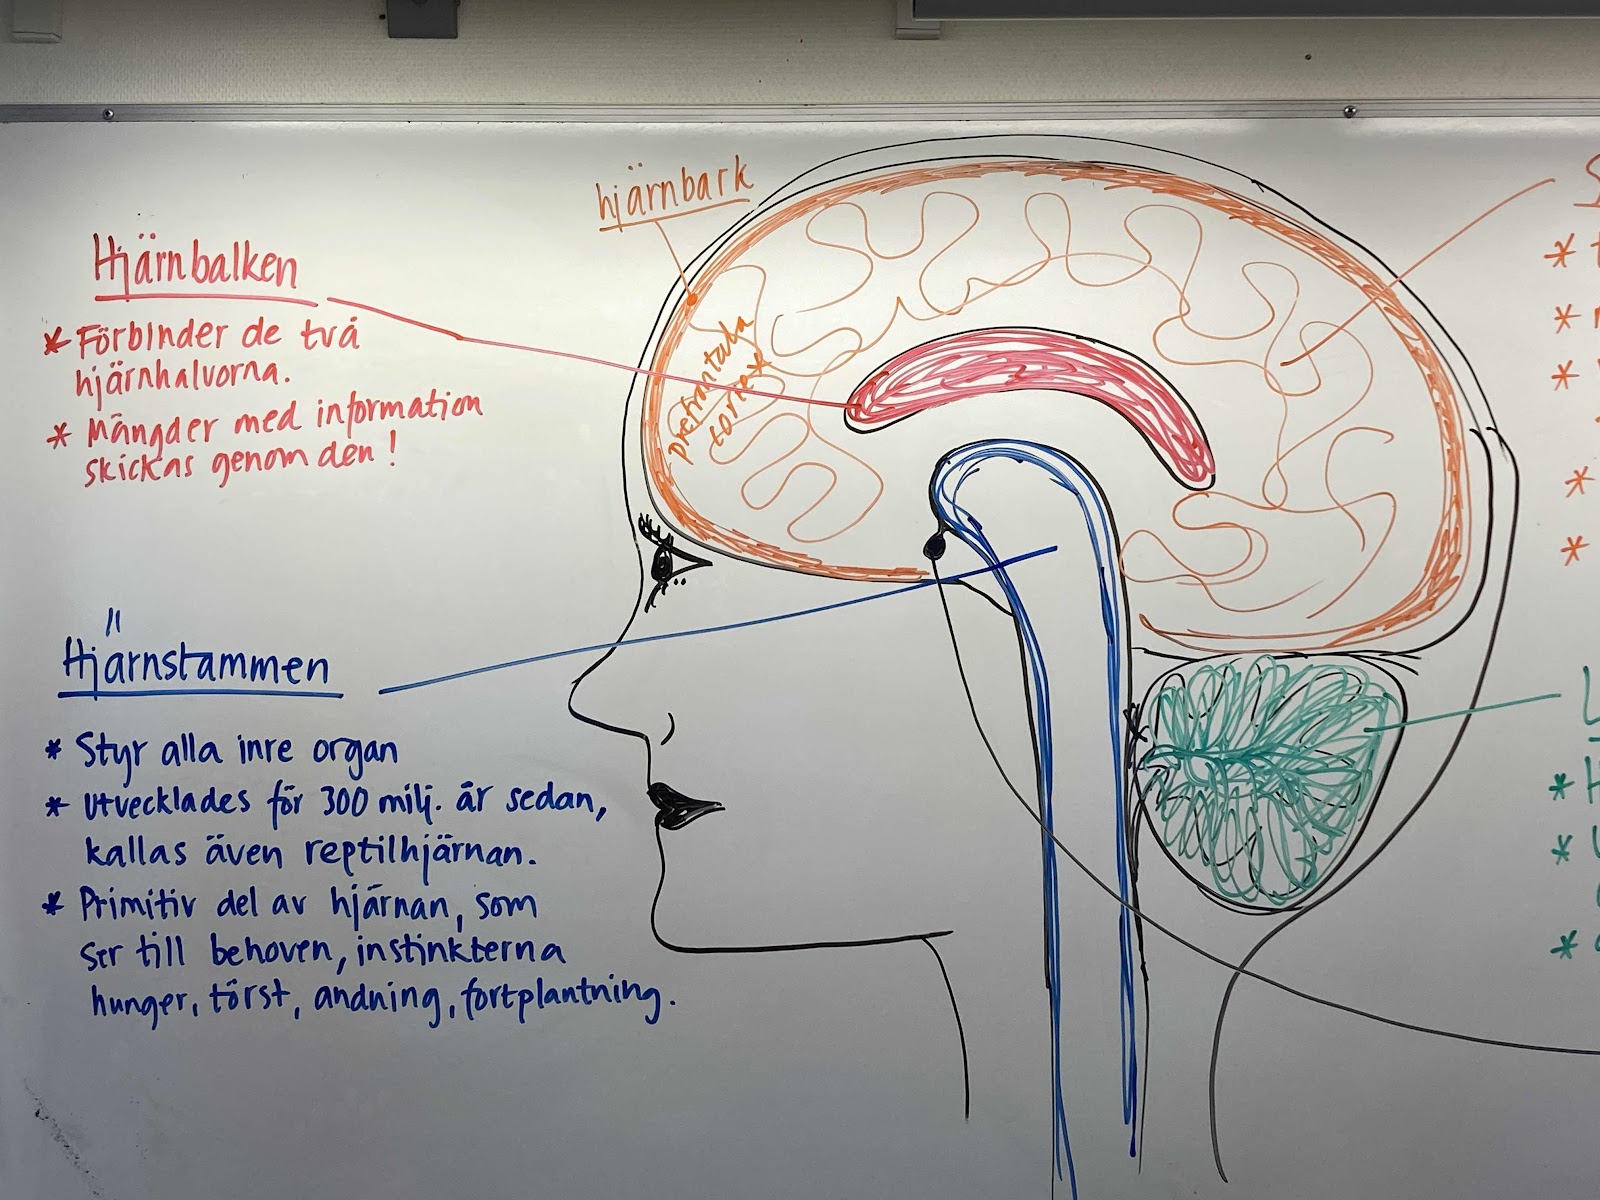 hjärnbark
Hjärnbalken
* Förbinder de två
hjärnhalvorna.
* Mängder med information
skickas genom den!
prefrontala
cortex
Hjärnstammen
* Styr alla inre organ
* Utvecklades för 300 milj. år sedan,
kallas även reptilhjärnan.
* Primitiv del av hjärnan, som
ser till behoven, instinkterna
hunger, törst, andning, fortplantning.